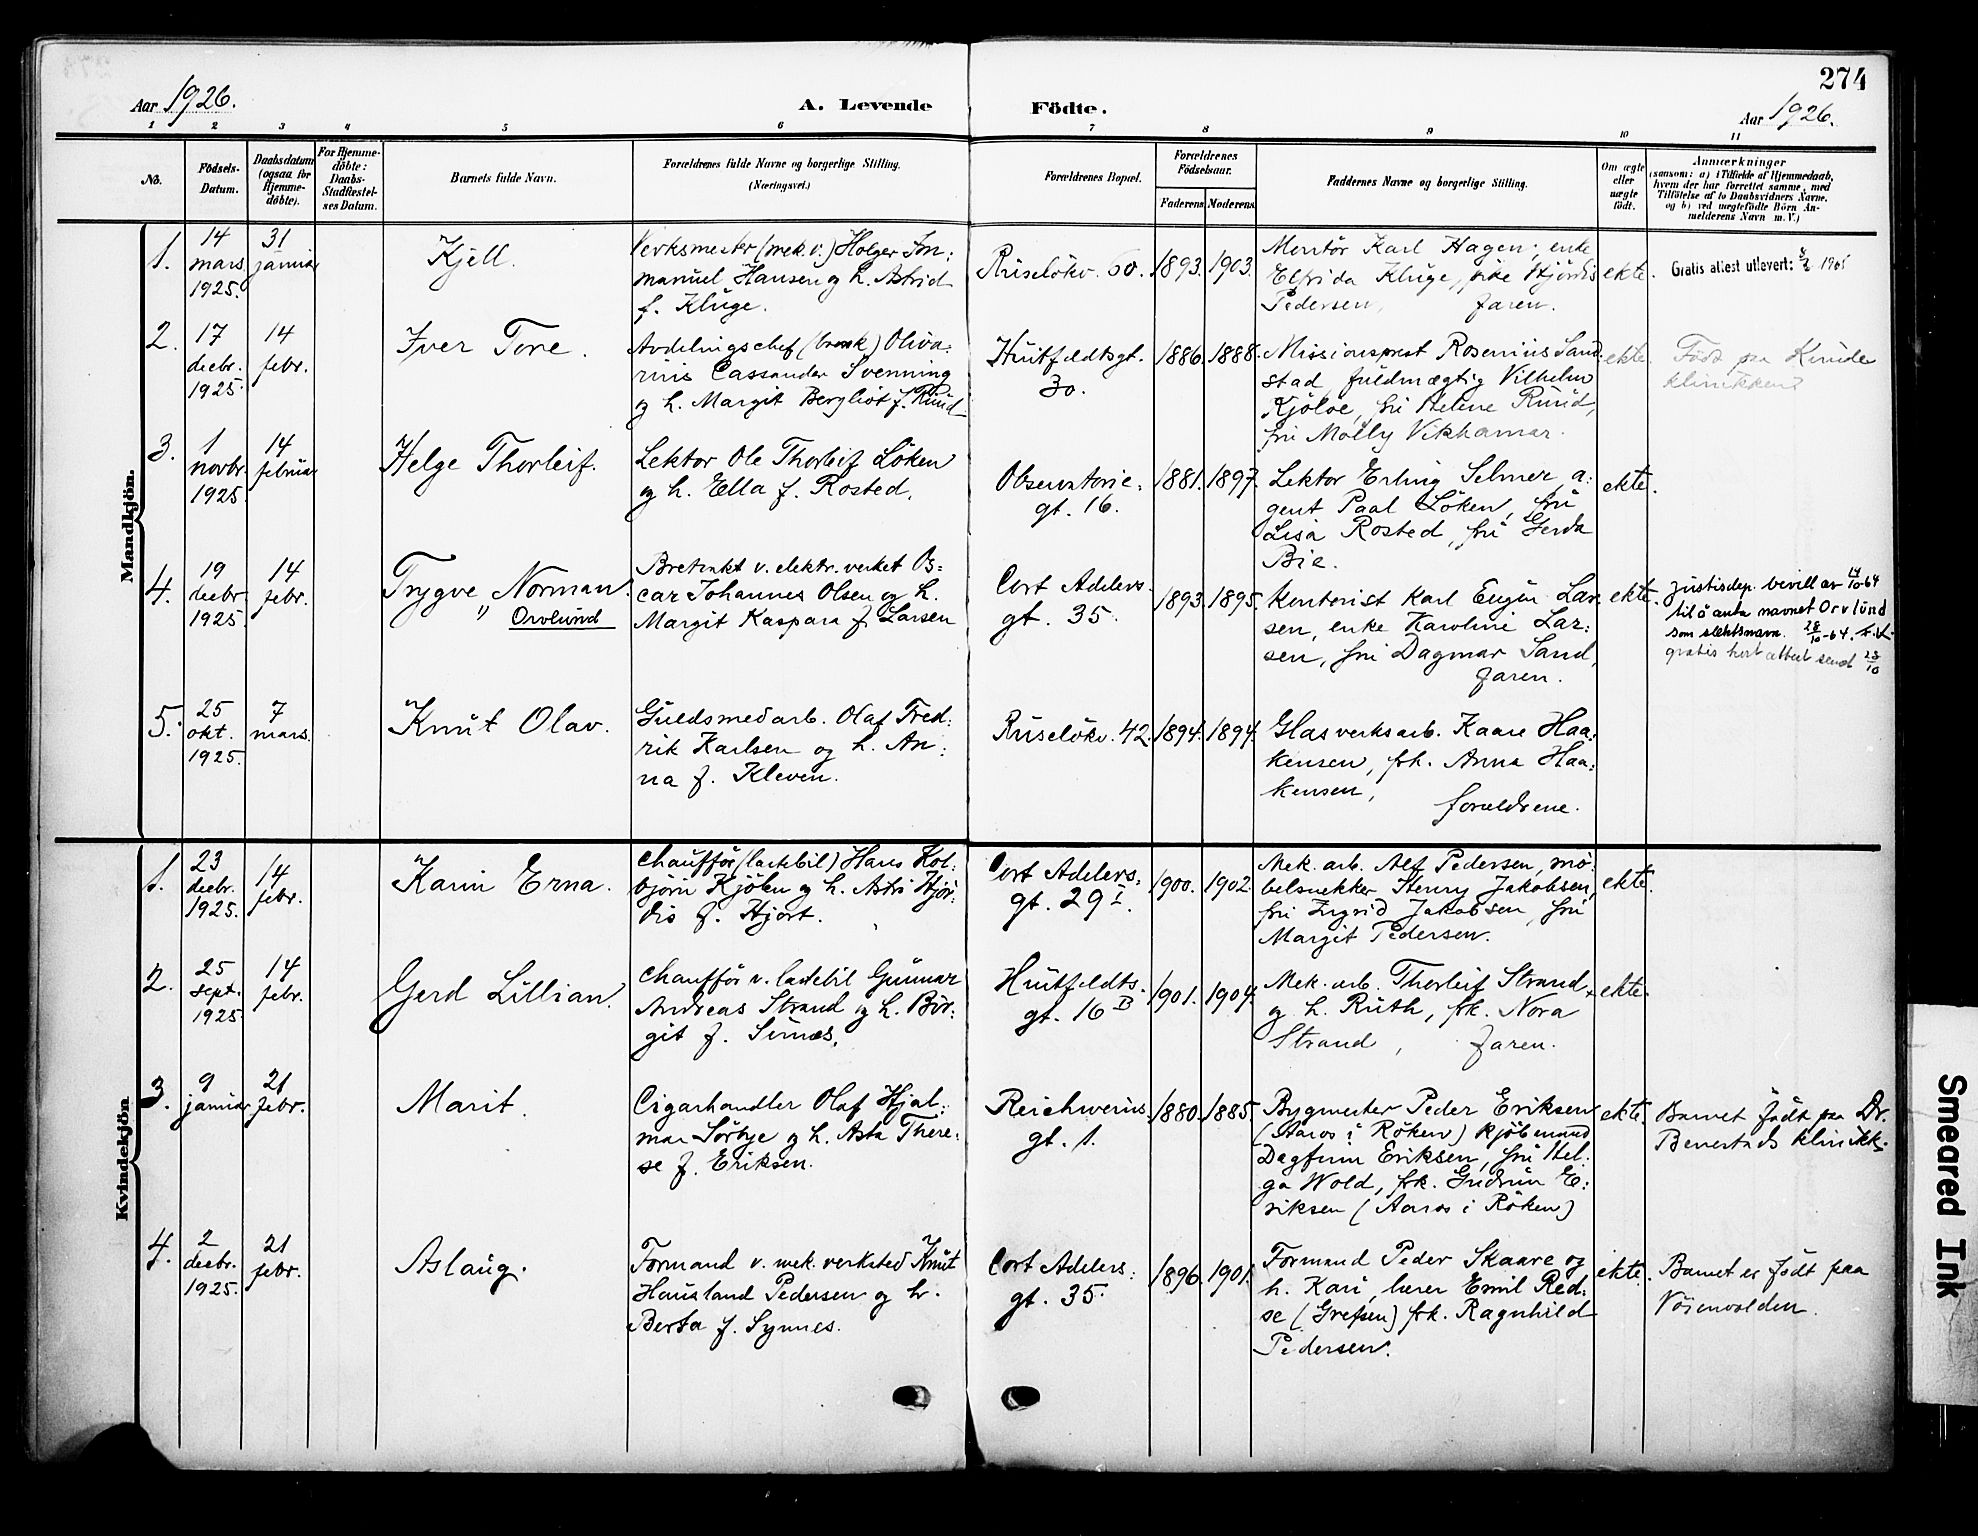 274
Aar 1926.
A. Levende Födte.
Aar 1926.
1 2 3 4 5 6 7 8 9 10 11
No.
Födsels-
Datum.
Daabsdatum
(ogsaa for
Hjemme-
döbte).
For Hjemme-
döbte:
Daabs-
Stadfæstel-
ses Datum.
Barnets fulde Navn.
Forældrenes fulde Navne og borgerlige Stilling.
(Næringsvei.)
Forældrenes Bopæl.
Forældrenes
Födselsaar.
Faderens Moderens
Faddernes Navne og borgerlige Stilling.
Om ægte
eller
uægte
födt.
Anmærkninger
(saasom: a) i Tilfælde af Hjemmedaab,
hvem der har forrettet samme, med
Tilföielse af to Daabsvidners Navne,
og b) ved uægtefödte Börn An-
melderens Navn m. V.)
Mandkjön.
1.
14
mars
1925.
31
januar
Kjell.
Verksmester (mek. v.) Holger Im=
manuel Hansen og h. Astrid
f. Kluge.
Ruselökv. 60.
1893. 1903.
Montör Karl Hagen, enke
Elfrida Kluge, frk Hjördis
Pedersen, faren.
ekte.
Gratis attest utlevert:
2.
17
decbr.
1925.
14
febr.
Iver Tore.
Avdelingschef (bank) Oliva=
rius Cassander Svenning
og h. Margit Bergliot f. Ruud
Huitfeldtsgt.
30.
1886. 1888.
Missionsprest Rosenius Sand=
stad, fuldmægtig Vilhelm
Kjölve, fru Helene Ruud,
fru Molly Vikhamar.
ekte.
Född paa Knude
klinikken
3.
1
novbr.
1925.
14
februar
Helge Thorleif.
Lektor Ole Thorleif Löken
og h. Ella f. Rosted.
Observatorie=
gt. 16.
1881. 1897.
Lektor Erling Selmer, a=
gent Paal Löken, fru
Lisa Rosted, fru Gerda
Bie.
ekte.
4.
19
decbr.
1925.
14
febr.
Trygve Norman.
" Orvlund
v. elektr. verket Os=
car Johannes Olsen og h.
Margit Kaspara f. Larsen
Cort Adelers
gt. 35.
1893. 1895.
Kontorist Karl Eugen Lar=
sen, enke Karoline Lar=
sen, fru Dagmar Sand,
faren.
ekte.
Justisdep. bevill av 14/10-64
til å anta navnet Orvlund
som slektsnavn. 28/10-64.
gratis attest send 28/10
5.
25
okt.
1925.
7
mars.
Knut Olav.
Guldsmedarb. Olaf Fred=
rik Karlsen og h. An=
na f. Kleven.
Ruselökv. 42.
1894. 1894.
Glasverksarb. Kaare Haa=
kensen, frk. Anna Haa=
kensen,
forældrene.
Kvindekjön
1.
23
decbr.
1925.
14
febr.
Karin Erna.
Chaufför (lastebil) Hans Kol=
björn Kjölen og h. Astri Hjör=
dis f. Hjort.
Cort Adelers
gt. 29 I.
1900. 1902.
Mek. arb. Alf Pedersen, mö=
belsnekker Henry Jakobsen,
fru Ingrid Jakobsen, fru
Margit Pedersen.
ekte.
2.
25
sept.
1925
14
febr.
Gerd Lillian.
Chaufför v. lastebil Gunnar
Andreas Strand og h. Bir=
git f. Simæs.
Huitfeldts.
gt. 16 B
1901. 1904.
Mek. arb. Thorleif Strand
og h. Ruth, frk. Nora
Strand, faren.
ekte.
3.
9
januar
21
febr.
Marit.
Cigarhandler Olaf Hjal=
mar Sörbye og h. Asta There=
se f. Eriksen.
Reichweins
gt. 1.
1880. 1885.
Bygmester Peder Eriksen
(Aaros i Röken) kjöbmand
Dagfinn Eriksen, fru Hel=
ga Wold, frk. Gudrun E=
riksen (Aaros i Röken)
ekte.
Barnet født paa Dr.
Benestads klinikk.
4.
2
decbr.
1925.
21
febr.
Aslaug.
Formand v. mek. verksted Knut
Hausland Pedersen og h.
Berta f. Synnes.
Cort Adelers
gt. 35.
1896. 1901.
Formand Peder Skaare og
h. Kari, lærer Emil Red=
se (Grefsen) frk. Ragnhild
Pedersen.
ekte.
Barnet er født paa
Vöienvolden.
Smeared Ink